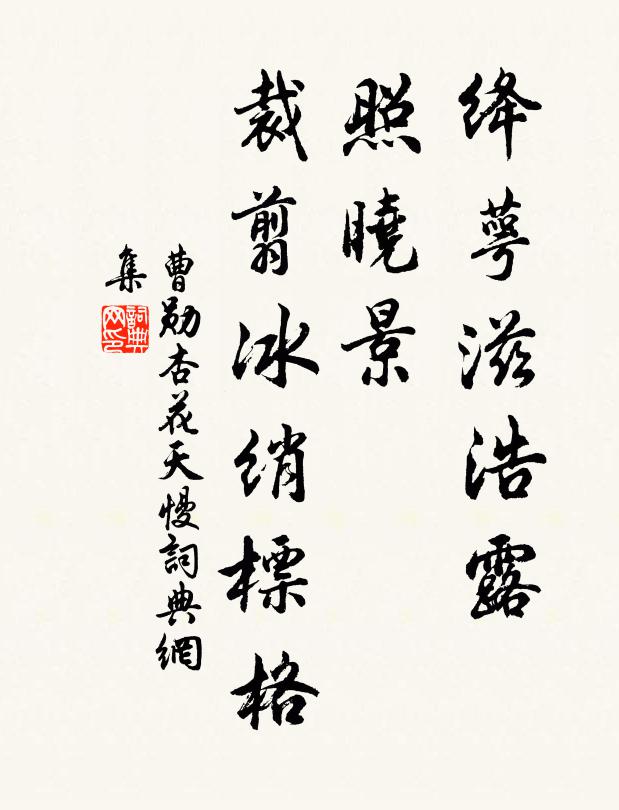 绛萼滋浩露
照曉景
裁剪冰綃標格
曹勛杏花天慢詞典網
集
詞典
网印